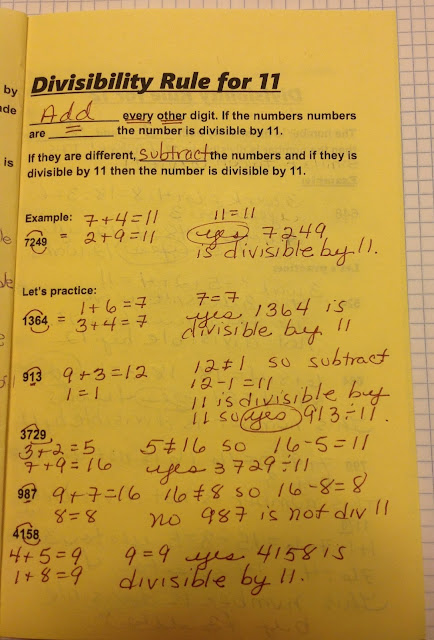 Divisibility Rule for 11
Add every other digit. If the numbers numbers
are = the number is divisible by 11.
If they are different, subtract the numbers and if they is
divisible by 11 then the number is divisible by 11.
Example: 7+4=11 11=11
7249 = 2+9=11 yes 7249
is divisible by 11.
Let's practice:
1+6=7 7=7
1364 = 3+4=7 yes 1364 is
divisible by 11
913 9+3=12 12≠1 so subtract
1=1 12-1=11
11 is divisible by
11 so yes 913÷11.
3729
3+2=5 5≠16 so 16-5=11
7+9=16 yes 3729÷11
987 9+7=16 16≠8 so 16-8=8
8=8 no 987 is not div 11
4158
4+5=9 9=9 yes 4158 is
1+8=9 divisible by 11.
by
is